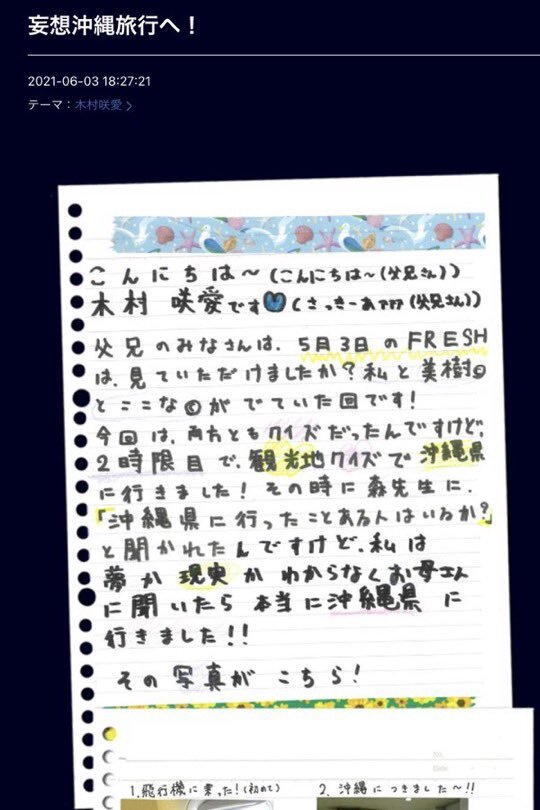 妄想沖縄旅行へ！
2021-06-03 18:27:21
テーマ：木村咲愛
こんにちは〜(こんにちは〜(父兄さん))
木村 咲愛です💙(さっきーあァァァ(父兄さん))
父兄のみなさんは、5月3日のFRESH
は、見ていただけましたか？私と美樹◎
とここな◎がでていた回です！
今回は、両方ともクイズだったんですけど、
2時限目で、観光地クイズで沖縄県
に行きました！その時に森先生に、
「沖縄県に行ったことある人はいるか？」
と聞かれたんですけど、私は
夢か現実かわからなくお母さん
に聞いたら本当に沖縄県に
行きました！！
その写真がこちら！
No.
Date
1.飛行機に乗った！(初めて)
2. 沖縄につきました〜!!